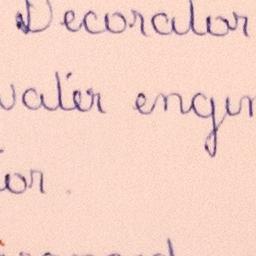 Decorator
water engin
tor.